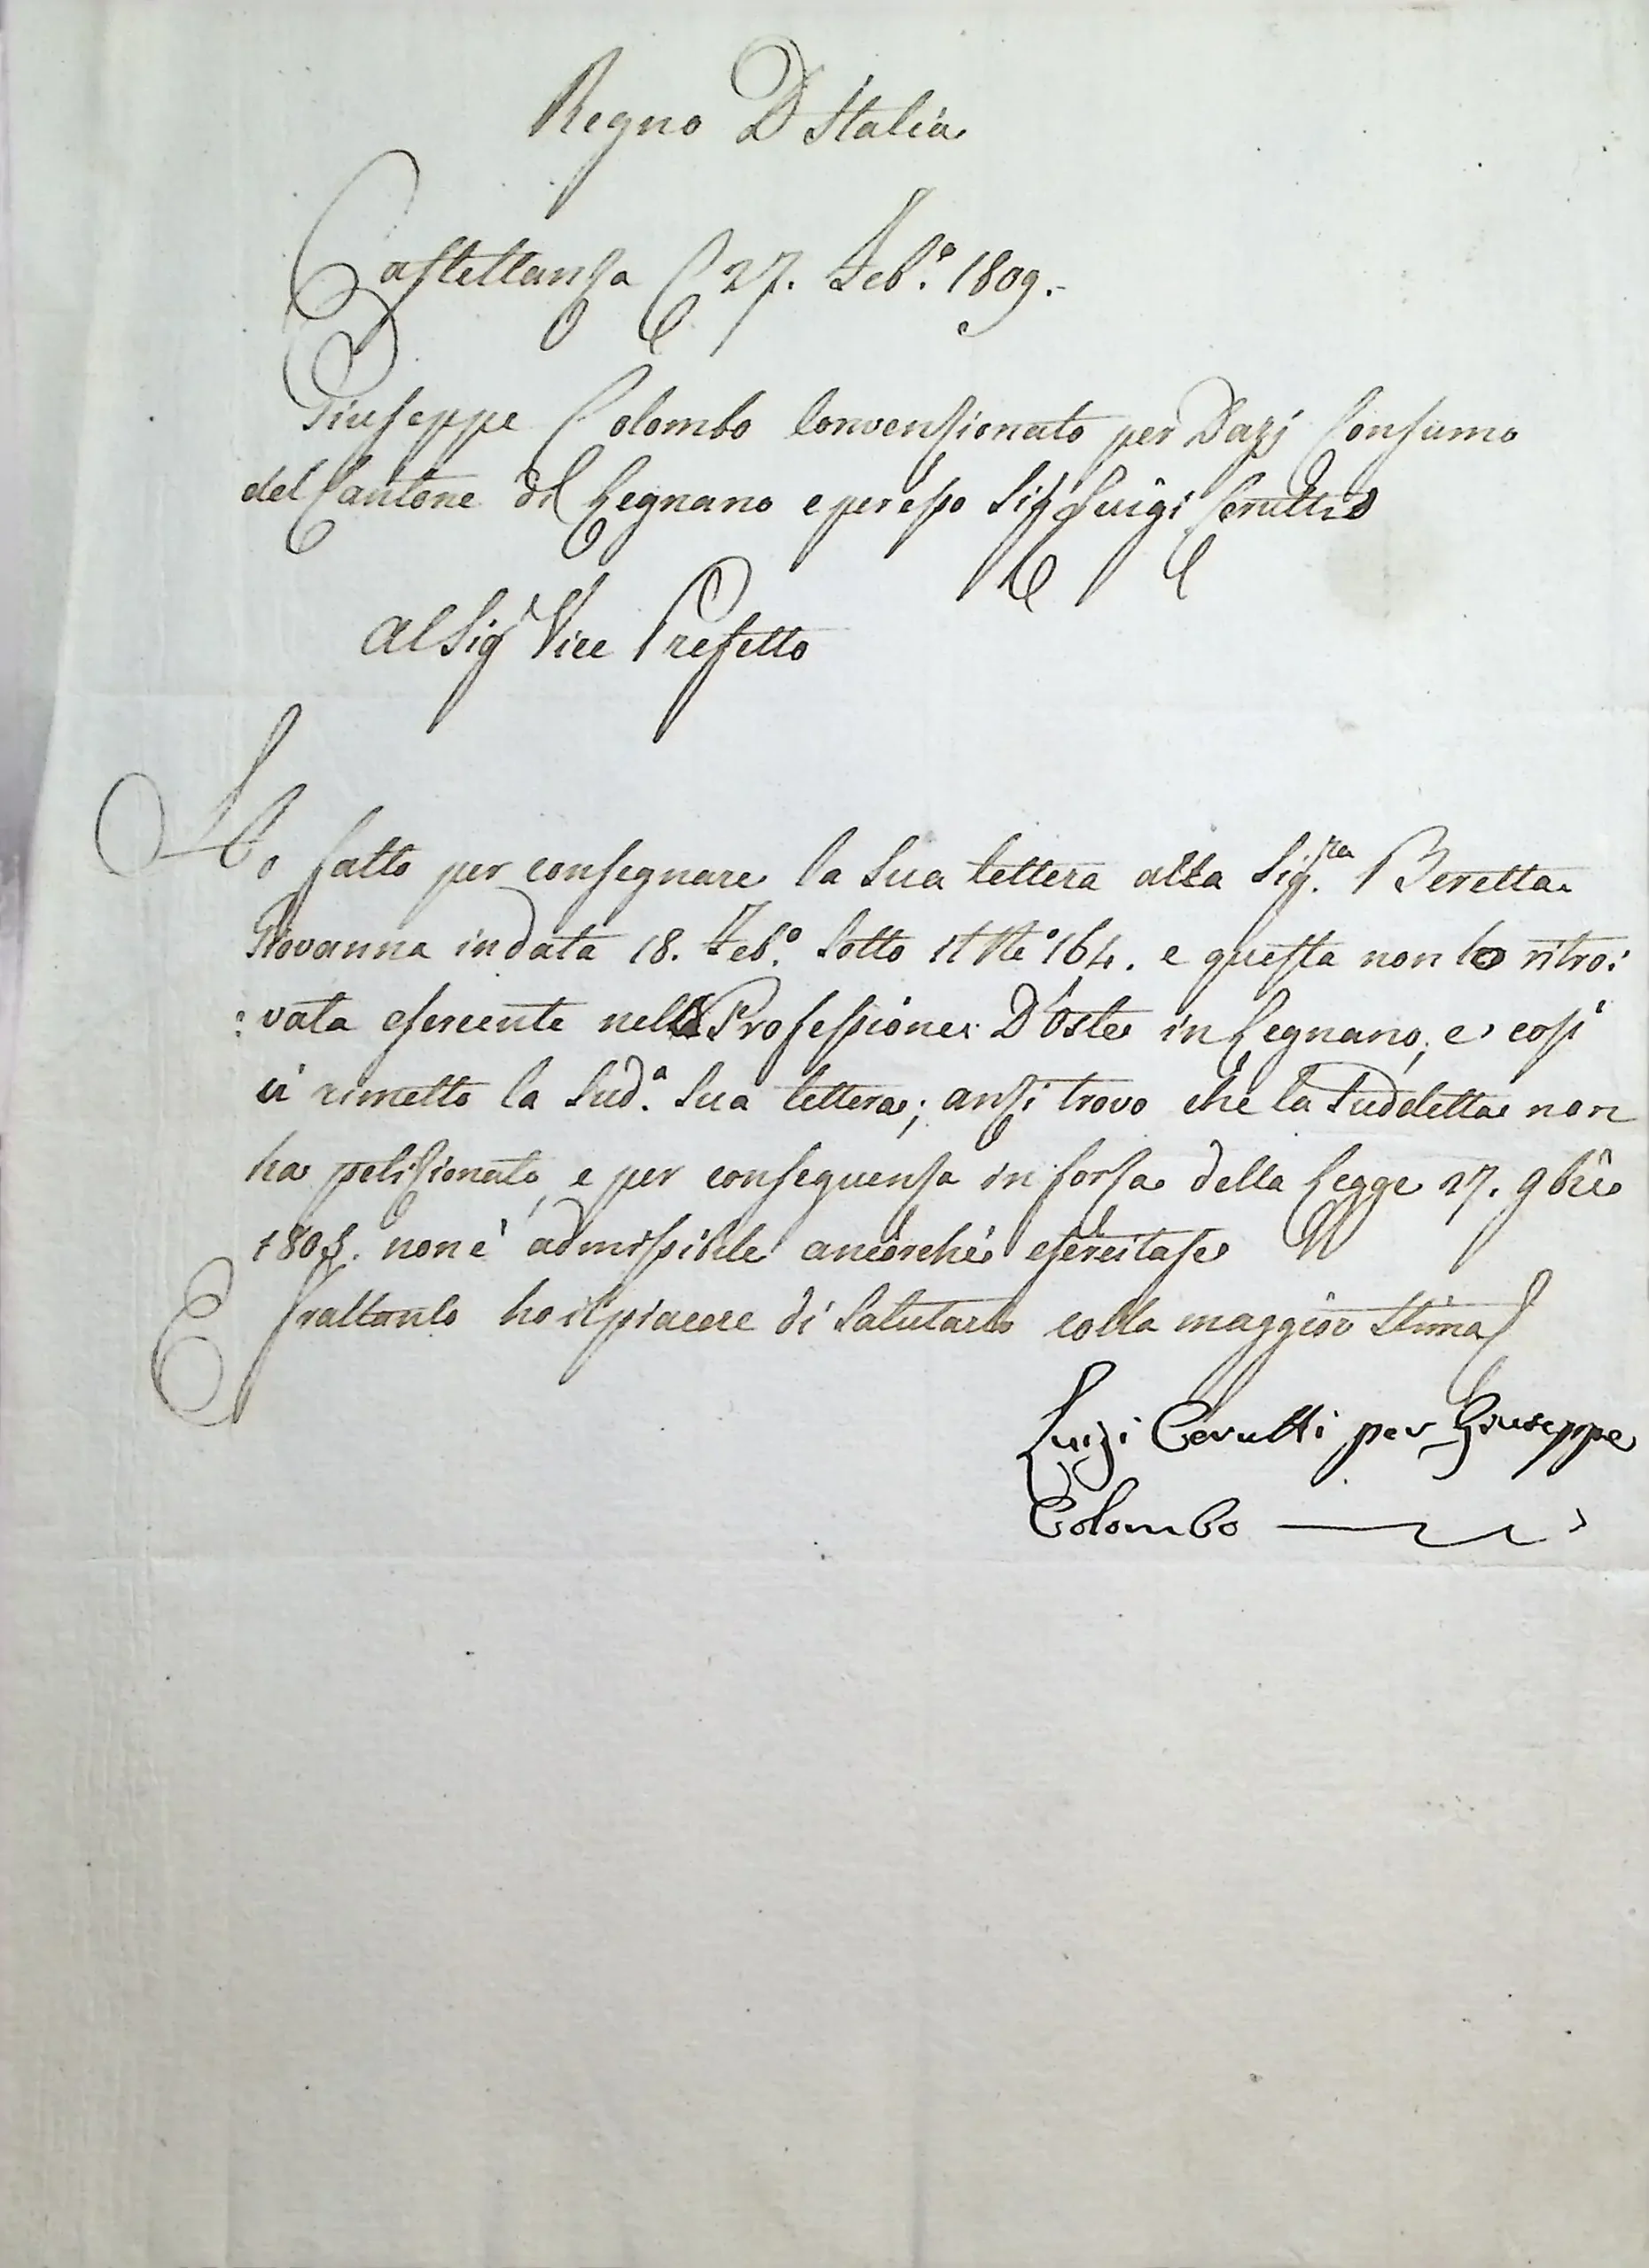 Regno D'Italia
Castellanza 27. Feb.º 1809.
Giuseppe Colombo Convensionato per Dazj Consumo
del Cantone di Legnano e per esso Sigʳ Luigi Cerutti
Al Sigʳ Vice Prefetto
Ho fatto per consegnare la Sua lettera alla Sig.ʳᵃ Beretta
Giovanna in data 18. Feb.º Sotto il Nº 164. e questa non ho ritro:
:vata esercente nella Professione D'Oste in Legnano, e così
ci rimetto la Sud.ª Sua lettera; ansi trovo che la Suddetta non
ha petisionato, e per conseguensa in forsa della Legge 27. 9bre
non è admissibile ancorchè esercitasse
Frattanto ho il piacere di Salutarlo colla maggior Stima
Luigi Cerutti per Giuseppe
Colombo